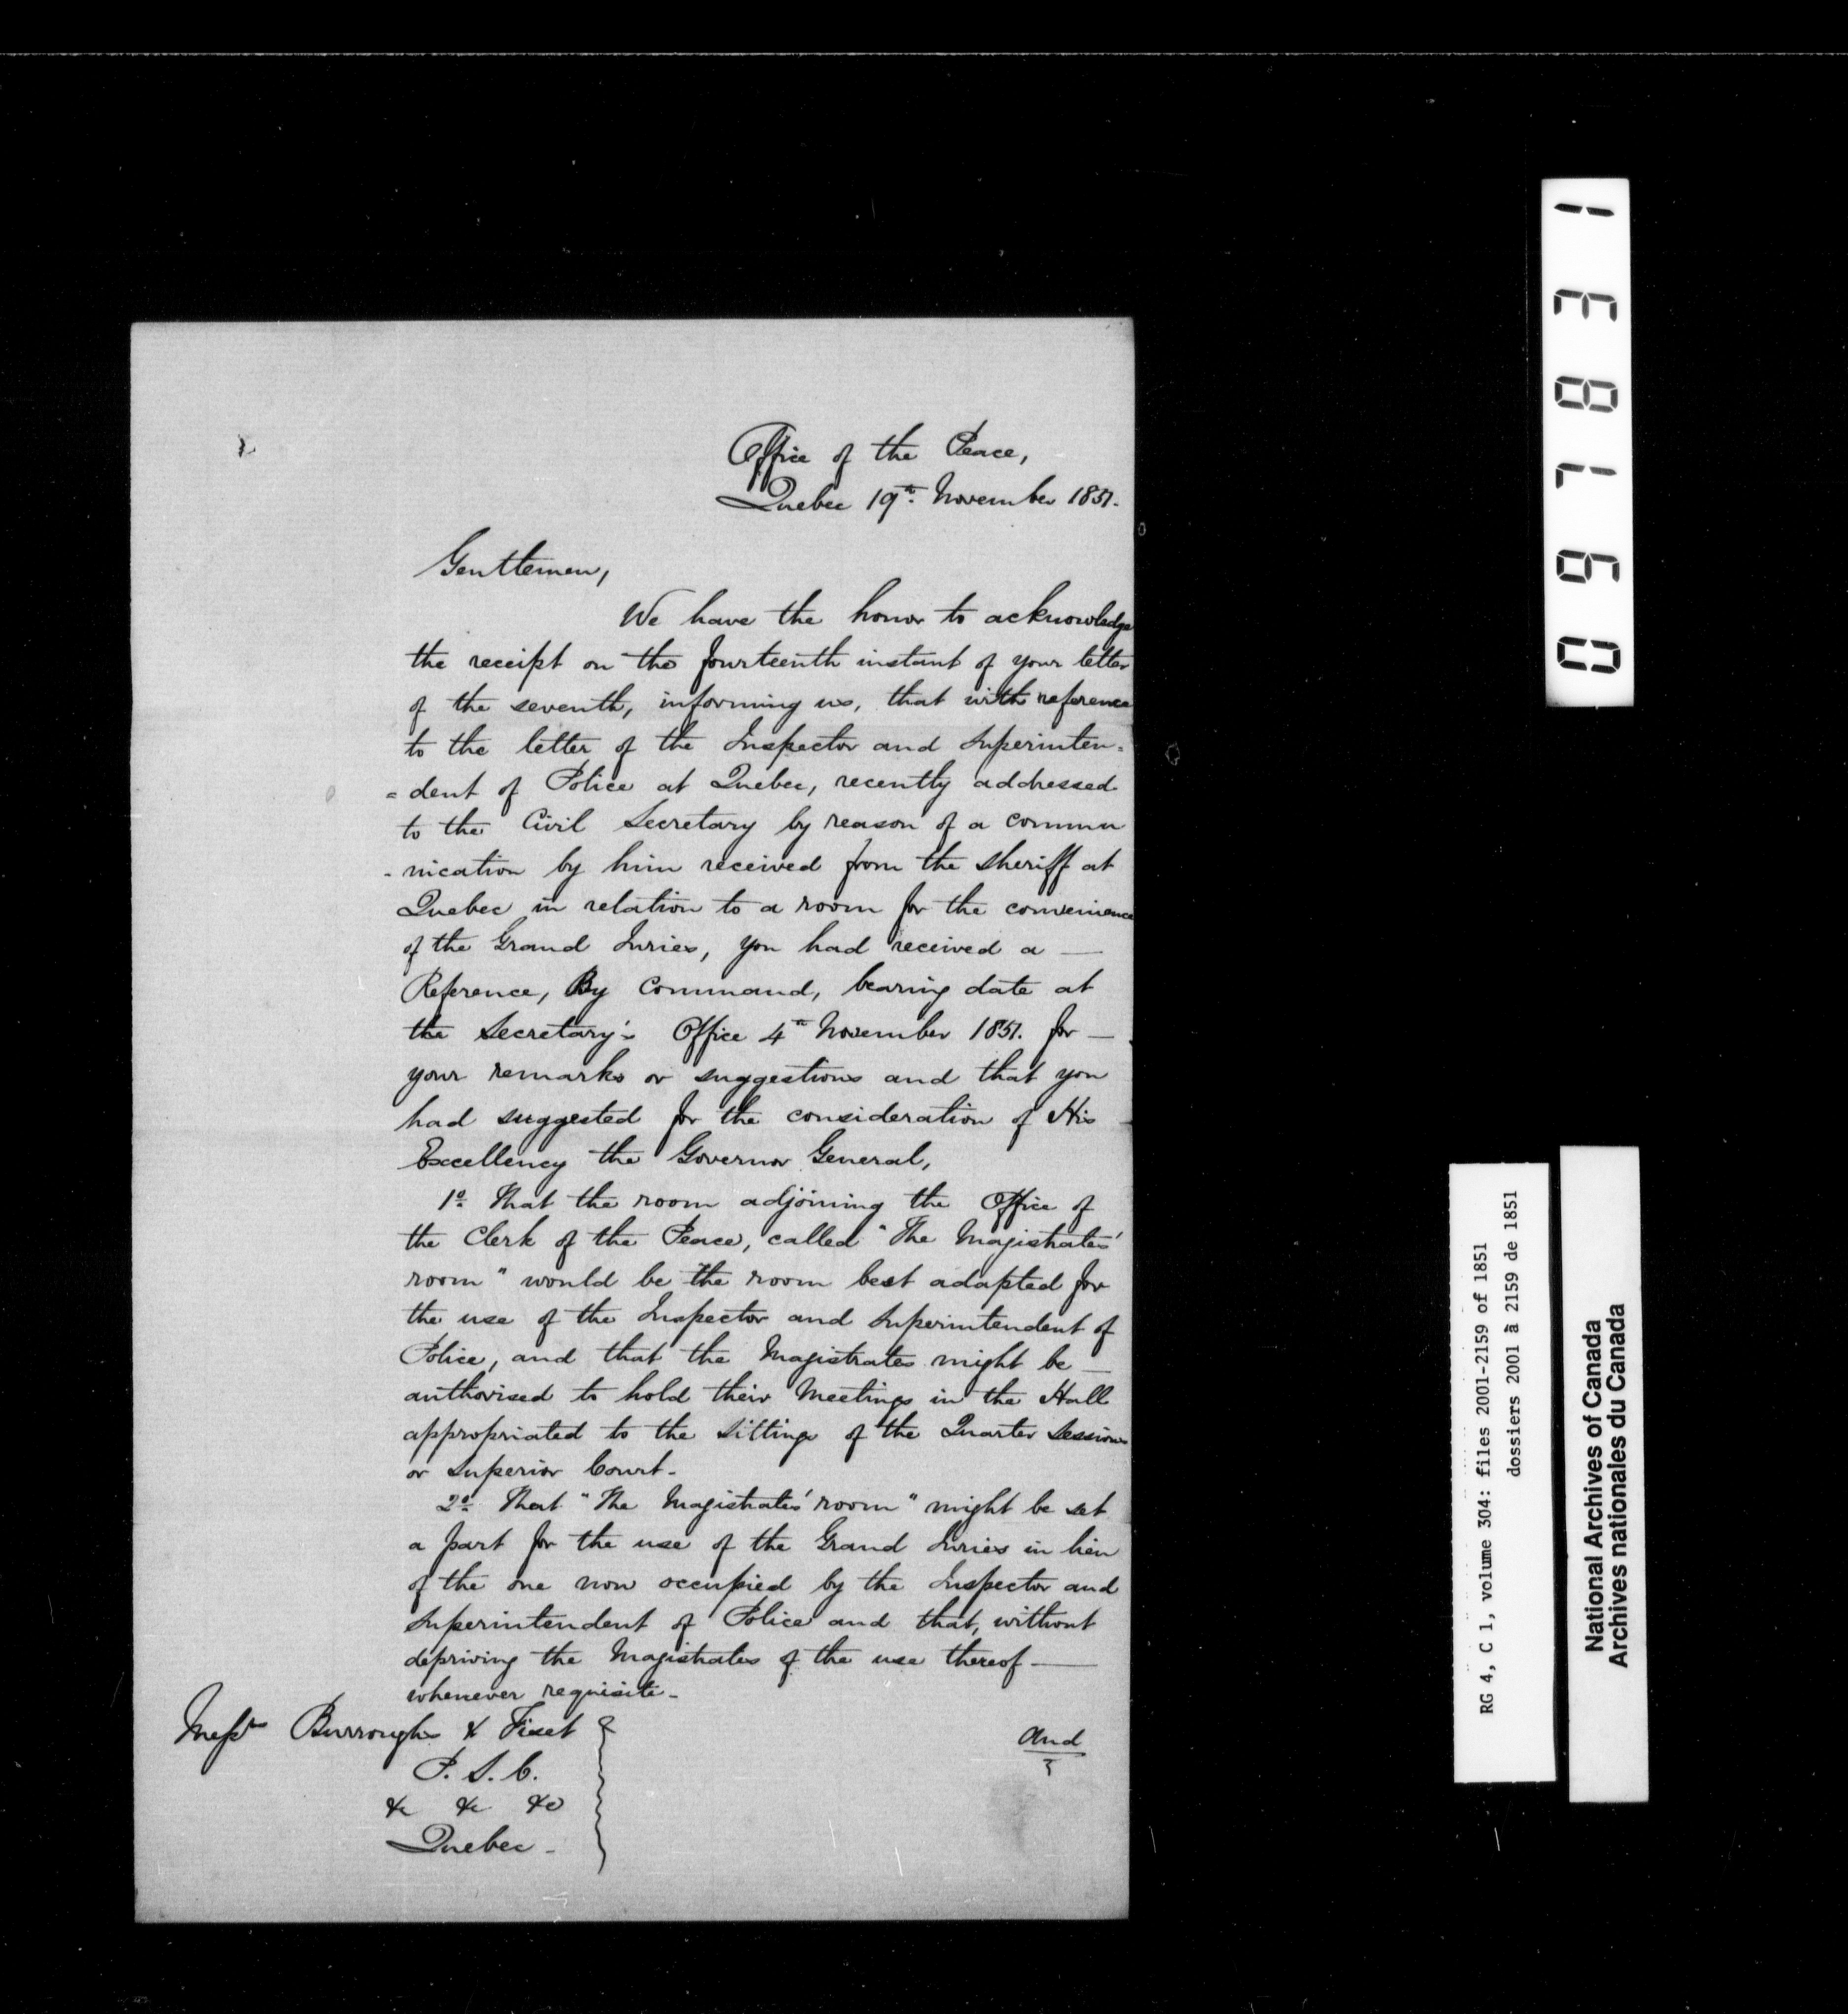 Office of the Peace,
Quebec 19th. November 1851.
Gentlemen,
We have the honor to acknowledge
the receipt on the fourteenth instant of your letter
of the seventh, informing us, that with reference
to the letter of the Inspector and Superinten=
=dent of Police at Quebec, recently addressed
to the Civil Secretary by reason of a commu
-nication by him received from the Sheriff at
Quebec in relation to a room for the convenience
of the Grand Juries, you had received a —
Reference, By Command, bearing date at
the Secretary's Office 4th November 1851. for —
your remarks or suggestions and that you
had suggested for the consideration of His
Excellency the Governor General,
1o. That the room adjoining the Office of
the Clerk of the Peace, called "The Magistrates'
room" would be the room best adapted for
the use of the Inspector and Superintendent of
Police, and that the Magistrates might be —
authorised to hold their Meetings in the Hall
appropriated to the Sittings of the Quarter Sessions
or Superior Court-
2o. That "The Magistrates' room" might be set
a part for the use of the Grand Juries in lieu
of the one now occupied by the Inspector and
Superintendent of Police and that, without
depriving the Magistrates of the use thereof —
whenever requisite-
Messrs Burroughs & Fiset
P. S. C.
&c &c &c
Quebec -
and
067831
RG 4, C 1, volume 304: files 2001-2159 of 1851
dossiers 2001 à 2159 de 1851
National Archives of Canada
Archives nationales du Canada